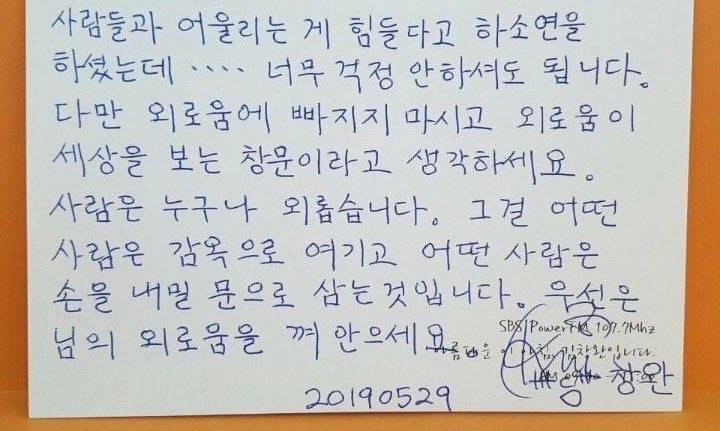 사람들과 어울리는 게 힘들다고 하소연을
하셨는데 ···· 너무 걱정 안하셔도 됩니다.
다만 외로움에 빠지지 마시고 외로움이
세상을 보는 창문이라고 생각하세요.
사람은 누구나 외롭습니다. 그걸 어떤
사람은 감옥으로 여기고 어떤 사람은
손을 내밀 문으로 삼는것입니다. 우선은
님의 외로움을 껴 안으세요
SBS PowerFM 107.7Mhz
아름다운 이 아침, 김창완입니다.
창완
20190529